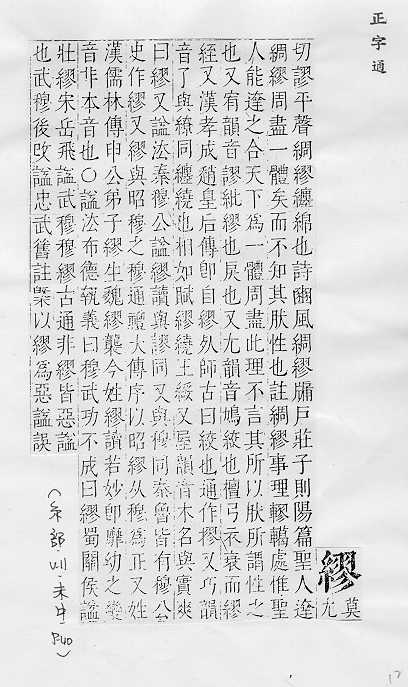 正字通
繆
莫尤
切謬平聲綢繆纏綿也詩豳風綢繆牖戶莊子則陽篇聖人逹
綢繆周盡一體矣而不知其肰性也註綢繆事理轇轕處惟聖
人能逹之合天下爲一體周盡此理不言其所以肰所謂性之
也又宥韻音謬紕繆也戾也又尤韻音鳩絞也檀弓示衰而繆
絰又漢孝成趙皇后傳卽自繆師古曰絞也通作摎又巧韻
音了與繚同纏繞也相如賦繆繞玉綏又屋韻音木名與實爽
曰繆又諡法秦穆公諡繆讀與謬同又與穆同秦魯皆有穆公
史作繆又繆與昭穆之穆通禮大傳序以昭繆从穆爲正又姓
漢儒林傳申公弟子繆生魏繆襲今姓繆讀若妙卽靡幼之變
音非本音也○諡法布德執義曰穆武功不成曰繆蜀關侯諡
壯繆宋岳飛諡武穆穆繆古通非繆皆惡諡
也武穆後改諡忠武舊註槩以繆爲惡諡誤
(糸部